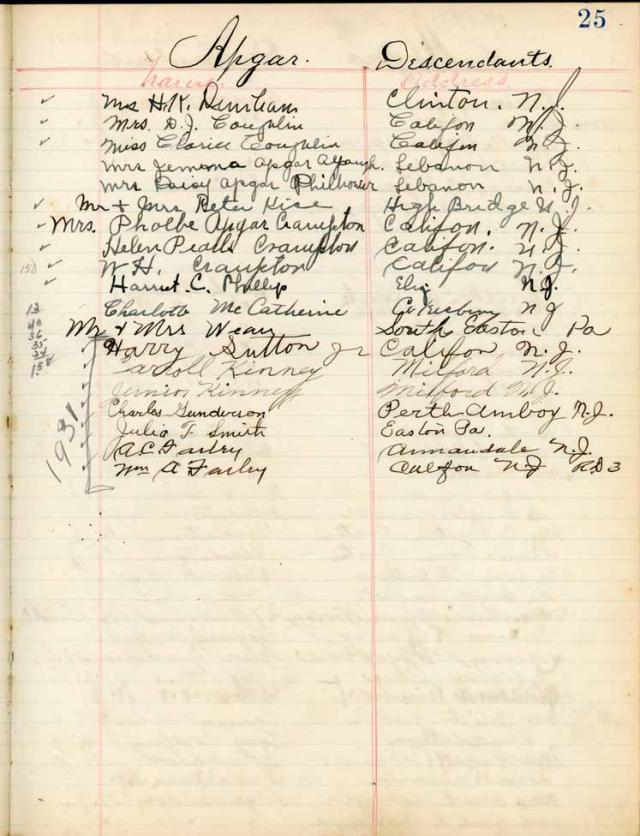 25
Apgar. Descendants.
Name Address
Mrs H.K. Clinton. N.J.
Mrs. D.J. Coughlin Califon N.J.
Miss Clarice Coughlin Califon N.J.
Mrs Jemima Apgar Lebanon N.J.
Mrs Daisy Apgar Philhower Lebanon N.J.
Mr & Mrs Peter Kice High Bridge N.J.
Mrs. Phoebe Apgar Crampton Califon, N.J.
Helen Crampton Califon. N.J.
150 W.H. Crampton Califon N.J.
Harriet C. Phillips N.J.
13 Charlotte McCatherine N J
40 Mr & Mrs South Easton Pa
36
35 Harry Sutton Jr Califon N.J.
34
158 Carroll Kinney Milford N.J.
Junior Kinney Milford N.J.
1931
Charles Gunderson Perth Amboy N.J.
Julia T. Smith Easton Pa.
A.C. Farley Annandale N.J.
Wm A Farley Califon N J R.D 3